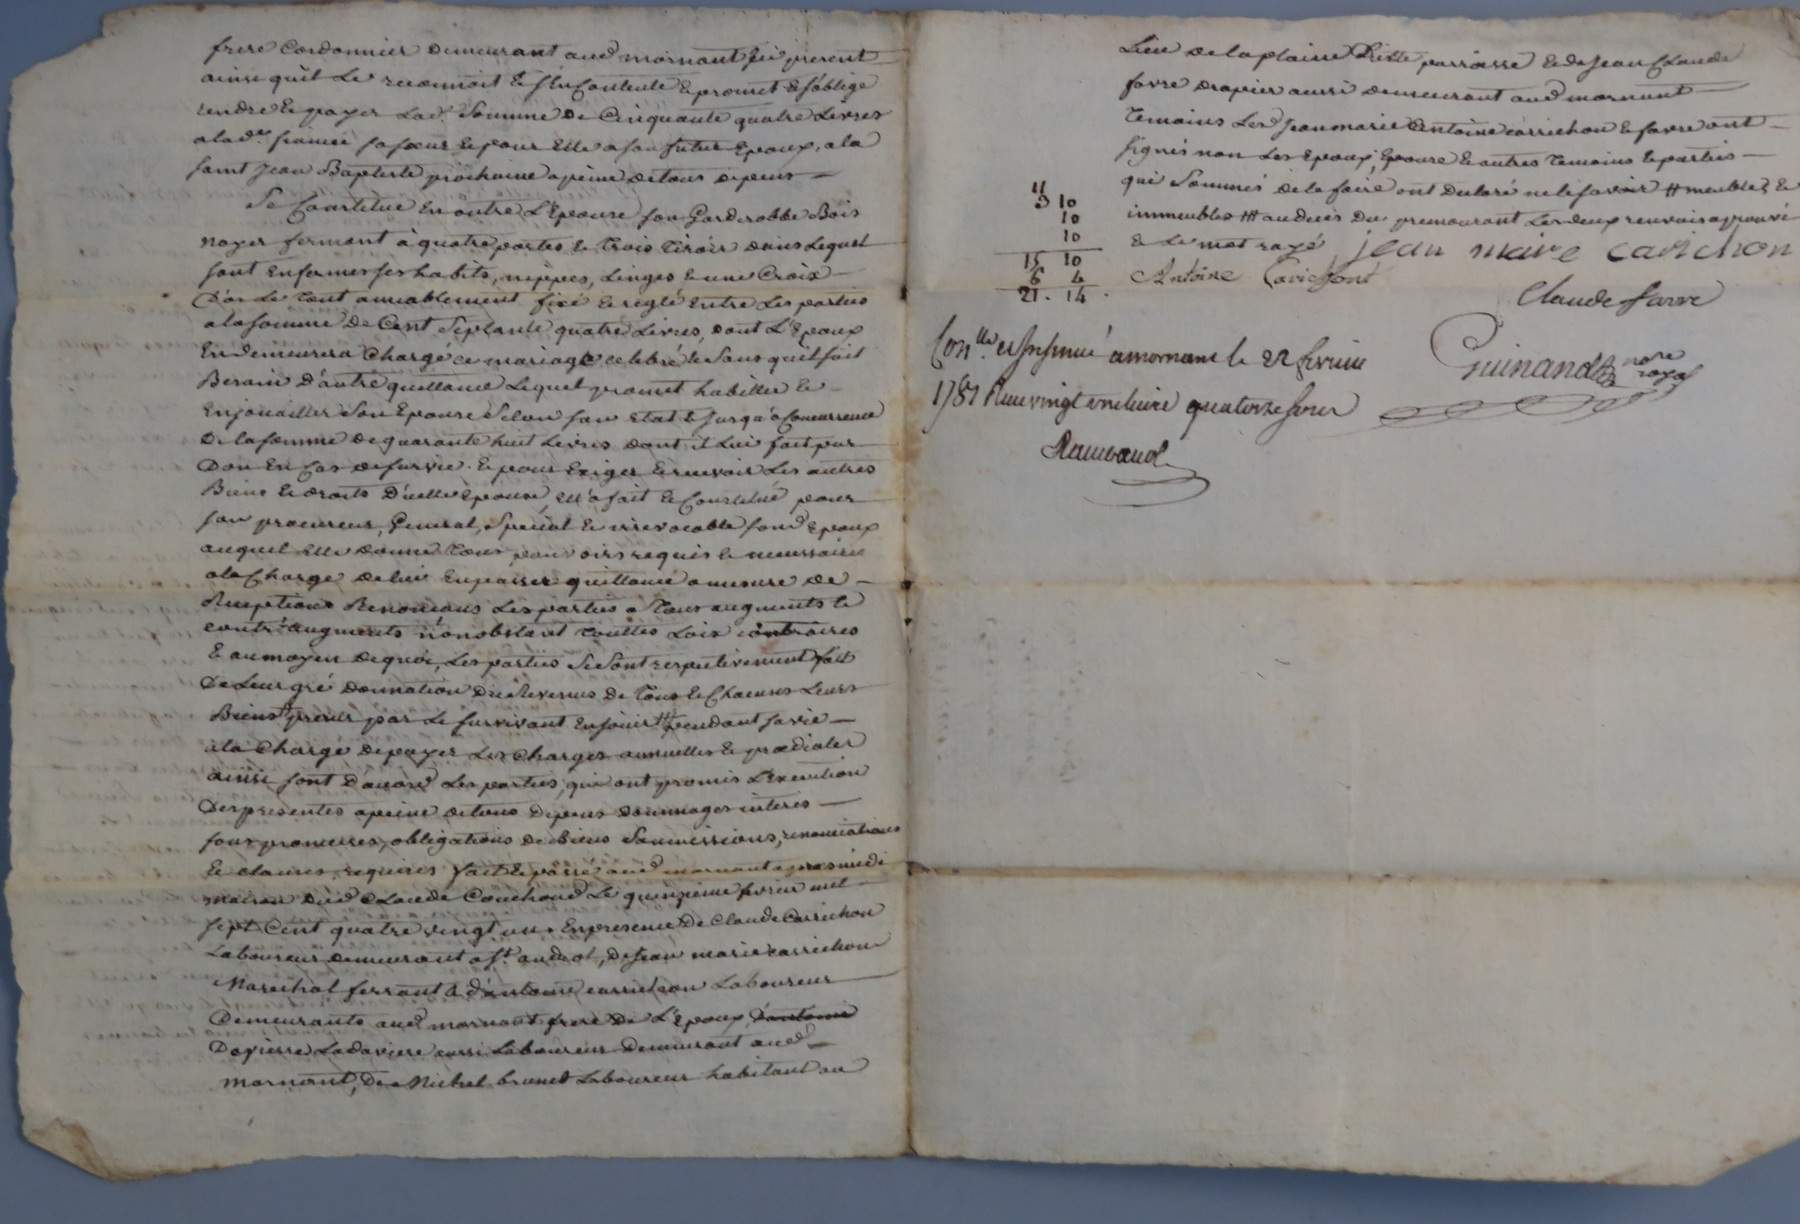 frere Cordonnier demeurant aud mornant icy present
ainsi qu'il Le reconnoit & s'En Contente & promet & s'oblige
rendre & payer Lad. Somme de Cinquante quatre Livres
a lad. fiancée sa soeur & pour Elle a son futur Epoux, a la
saint Jean Baptiste prochaine a peine de tous depens
Se Constitue En outre L'Epouse son Garderobbe Bois
noyer fermant à quatre portes & trois tiroir dans Lequel
sont Enfermes ses habits, nippes, Linges & une Croix
D'or Le tout amiablement fixé & reglé Entre Les parties
a la somme de Cent Septante quatre Livres, dont L'Epoux
En demeurera Chargé ce mariage celebré & Sans quil soit
Besoin d'autre quittance Lequel promet habiller &
Enjouailler Son Epouse Selon son Etat & jusqu'a Concurrence
De la somme de quarante huit Livres dont il Lui fait pur
Don En Cas de survie. & pour Exiger & recevoir Les autres
Biens & droits D'icelle Epouse, Ell'a fait & Constitué pour
son procureur, General, Special & irrevocable sond Epoux
auquel Elle donne tous pouvoirs requis & necessaires
a la Charge de lui En passer quittance a mesure de
Receptions Renoncans Les parties a Tous augments &
contr'augments nonobstant touttes Loix contraires
& au moyen de quoi, Les parties Se Sont respectivement fait
De Leur gré donnation Des Revenus de Tous & Chacuns Leurs
Biens # par Le survivant En jouir ## pendant sa vie
a la Charge de payer Les Charges annuelles & prædiales
ainsi sont D'accord Les parties, qui ont promis L'Execution
Des presentes a peine de tous Depens dommages interes
sous promesses, obligations de Biens Soumissions, renonciations
& clauses, requises fait & passé aud mornant apres midi
maison dud Claude Couchoud Le quinzieme fevrier mil
sept Cent quatre vingt un. En presence De Claude Carrichon
Laboureur demeurant a St. andeol, De Jean marie carrichon
Marechal ferrant & d'antoine carrichon Laboureur
Demeurants aud mornant frere De L'Epoux,
De pierre Ladaviere aussi Laboureur Demeurant aud
mornant, De Michel brunet Laboureur habitant au
Lieu de la plaine Ditte parroisse & de Jean Claude
favre drapier aussi demeurant aud mornant
Temoins Les Jean marie Antoine carrichon & favre ont
signés non Les Epoux, Epouse & autres temoins & parties
qui Sommés de le faire, ont Declaré ne le savoir # meubles &
immeubles ## au deces Du premourant Les deux renvois approuvé
& Le mot rayé
jean marie carichon
Antoine Carichont
Claude favre
11
3 10
10
10
15 10
6 4
21. 14.
Con.lle et Insinué a mornant le 22 fevrier
1781 Reçu vingt une livre quatorze sous
Guinand no.re royal